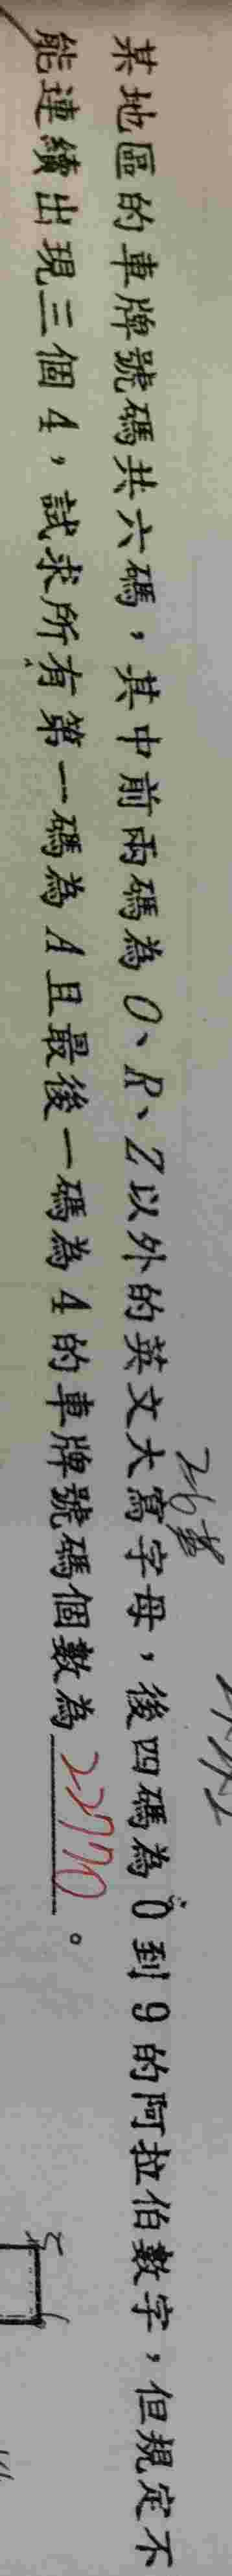 某地區的車牌號碼共六碼，其中前兩碼為 O、R、Z 以外的英文大寫字母，後四碼為 0 到 9 的阿拉伯數字，但規定不
能連續出現三個 4，試求所有第一碼為 A 且最後一碼為 4 的車牌號碼個數為 22770 。
26